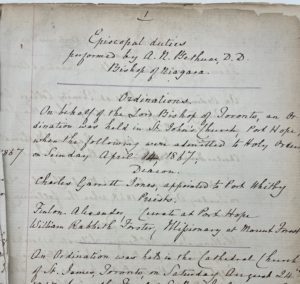 1
Episcopal duties
performed by A. N. Bethune, D.D.
Bishop of Niagara.
Ordinations.
On behalf of the Lord Bishop of Toronto, an Or-
dination was held in St. John's Church, Port Hope
when the following were admitted to Holy Orders
on Sunday April 14, 1867.
1867
Deacon.
Charles Garrett Jones, appointed to Port Whitby
Priests.
Finlow Alexander, Curate at Port Hope
William Forster, Missionary at Mount Forest
An Ordination was held in the Cathedral Church
of St. James, Toronto on Saturday August 24th